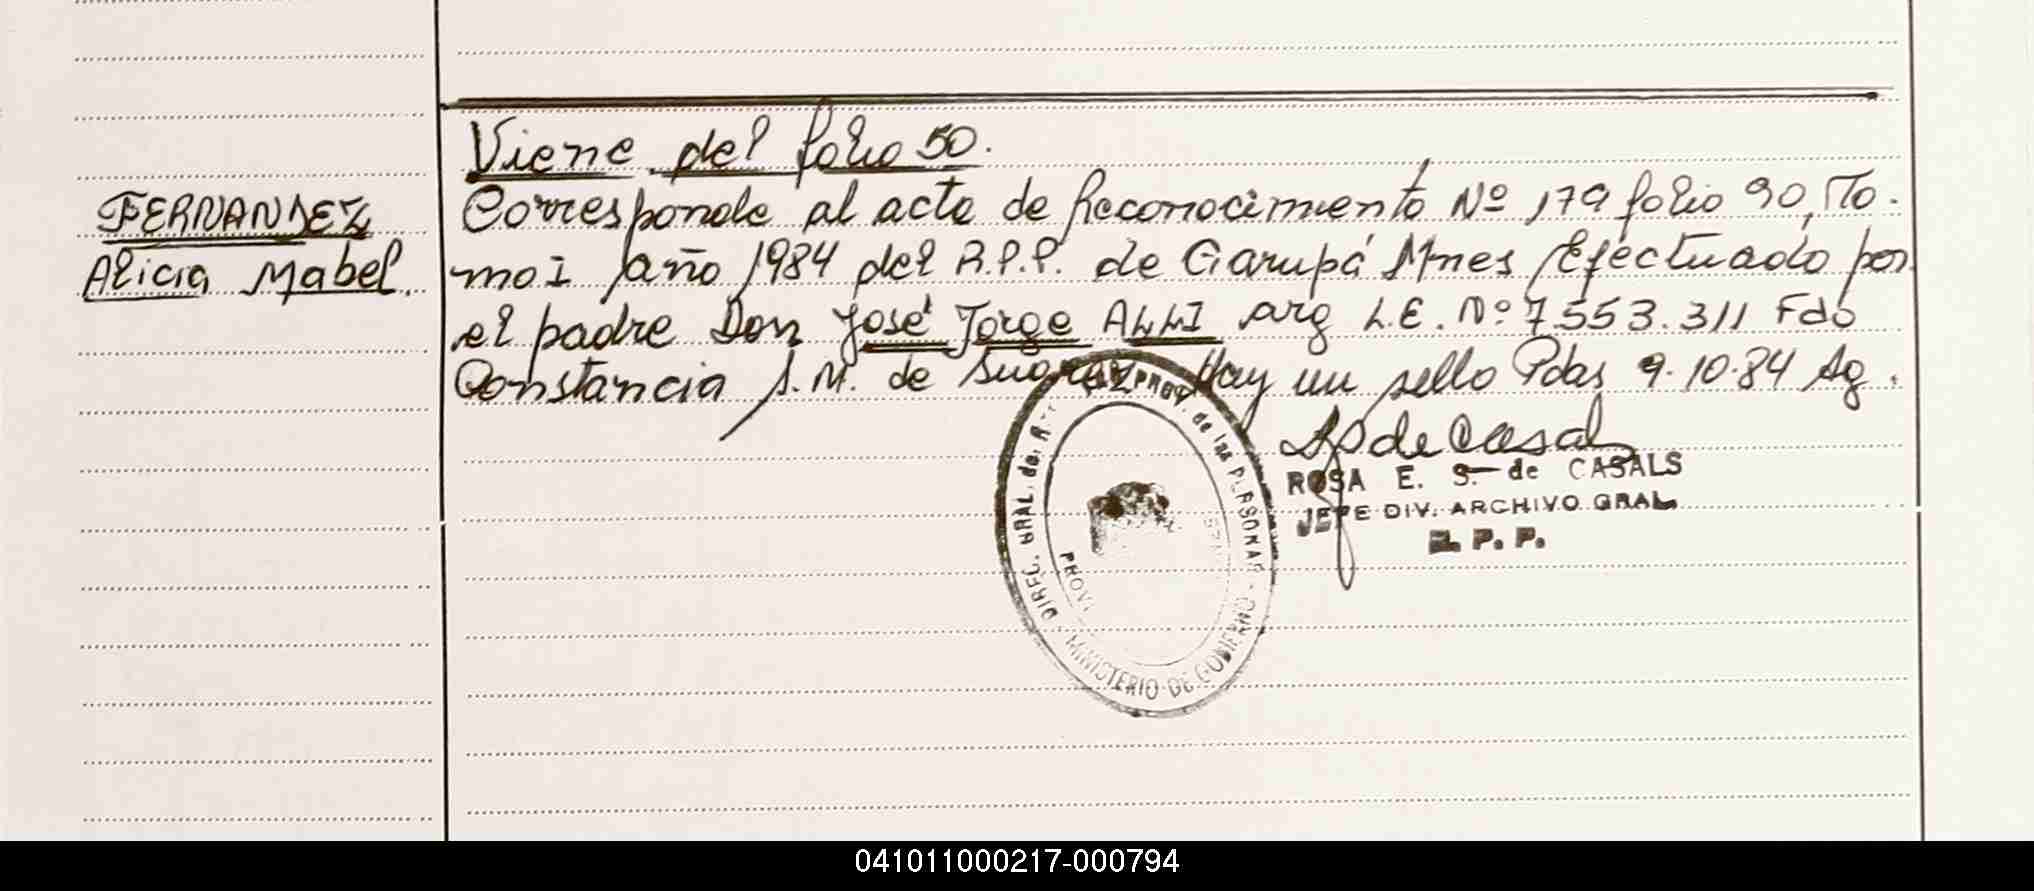 Viene del folio 50.
FERNANDEZ
Alicia Mabel.
Corresponde al acta de Reconocimiento Nº 179 folio 90, To.
mo I año 1984 del R.P.P. de Garupá Mnes Efectuado por
el padre Don José Jorge ALLI arg L.E. Nº 7.553.311 Fdo
Constancia S.M. de Suarez Hay un sello Pdas 9.10.84 Ag.
de Casals
ROSA E. S. de CASALS
JEFE DIV. ARCHIVO GRAL
R. P. P.
DIREC. GRAL. de. PROV. de las PERSONAS
MINISTERIO DE GOBIERNO
041011000217-000794